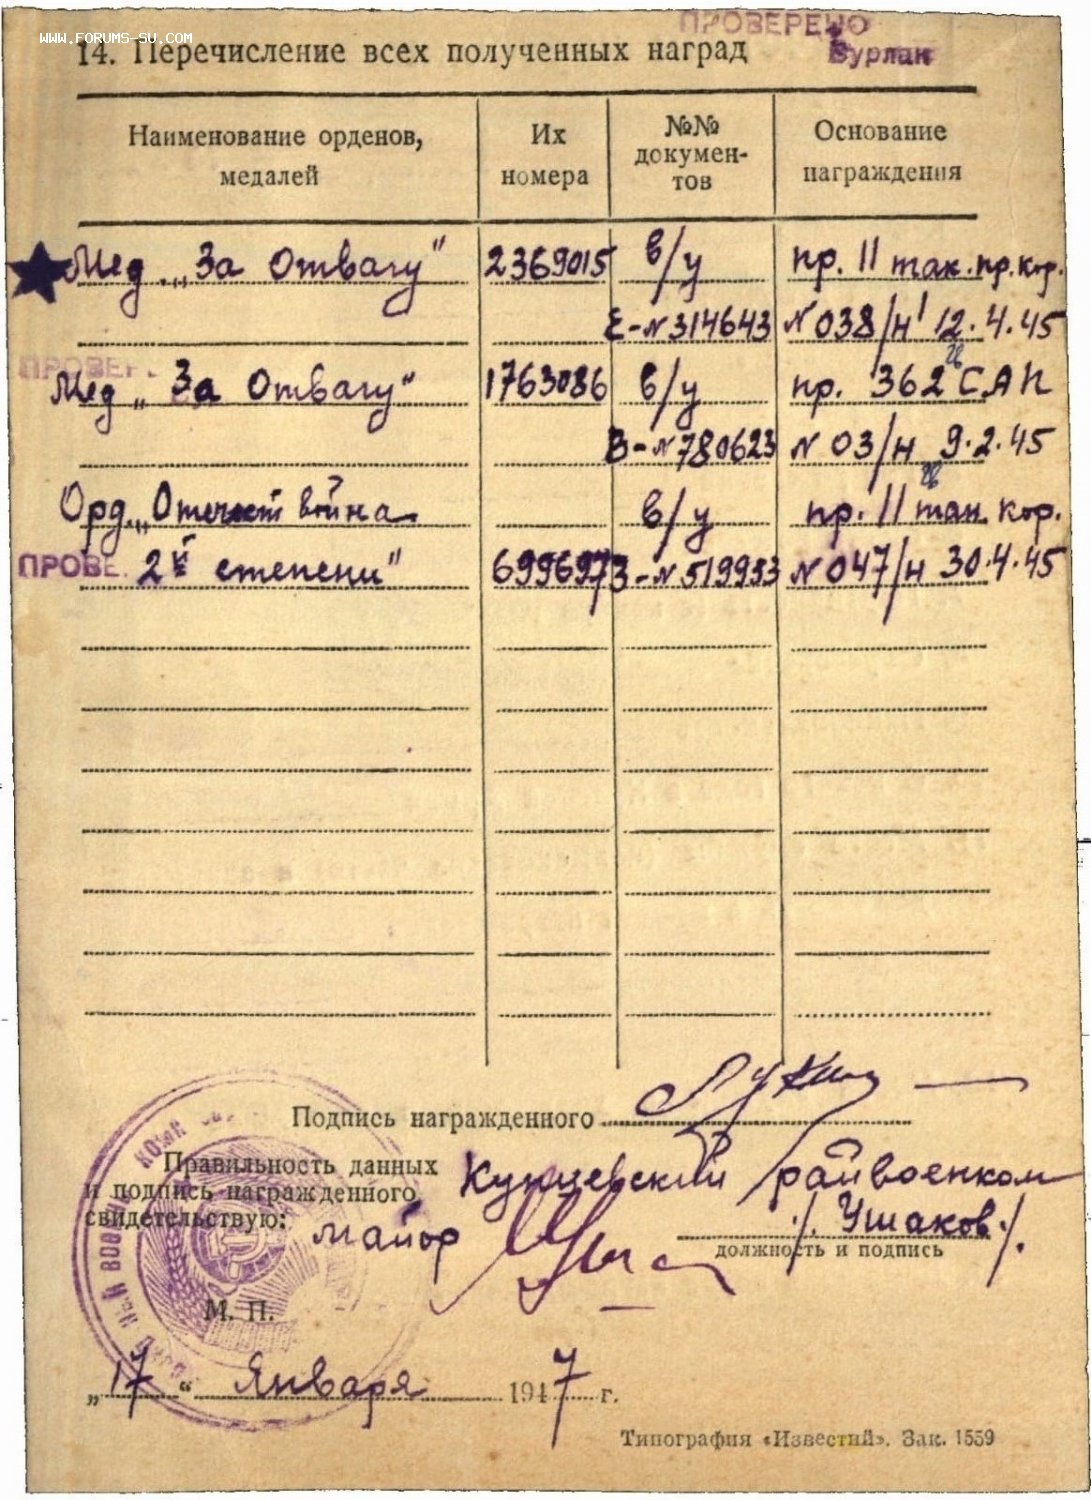 ПРОВЕРЕНО
WWW.FORUMS-SU.COM
Бурлак
14. Перечисление всех полученных наград
Наименование орденов, медалей
Их номера
№№ документов
Основание награждения
Мед. „За Отвагу" 2369015 в/у пр. 11 так. пр. кор.
Е-N314643 N 038/н 12.4.45
ПРОВЕР
Мед „За Отвагу" 1763086 в/у пр. 362 САП
В-N780623 N 03/н 9.2.45
Орд. „Отечест война в/у пр. 11 тан. кор.
ПРОВЕ. 2й степени" 699697 В-N519953 N 047/н 30.4.45
Подпись награжденного
Правильность данных
и подпись награжденного
свидетельствую:
Кунцевский райвоенком
майор /. Ушаков./
должность и подпись
М. П.
„17" Января 1947 г.
Типография «Известий». Зак. 1559